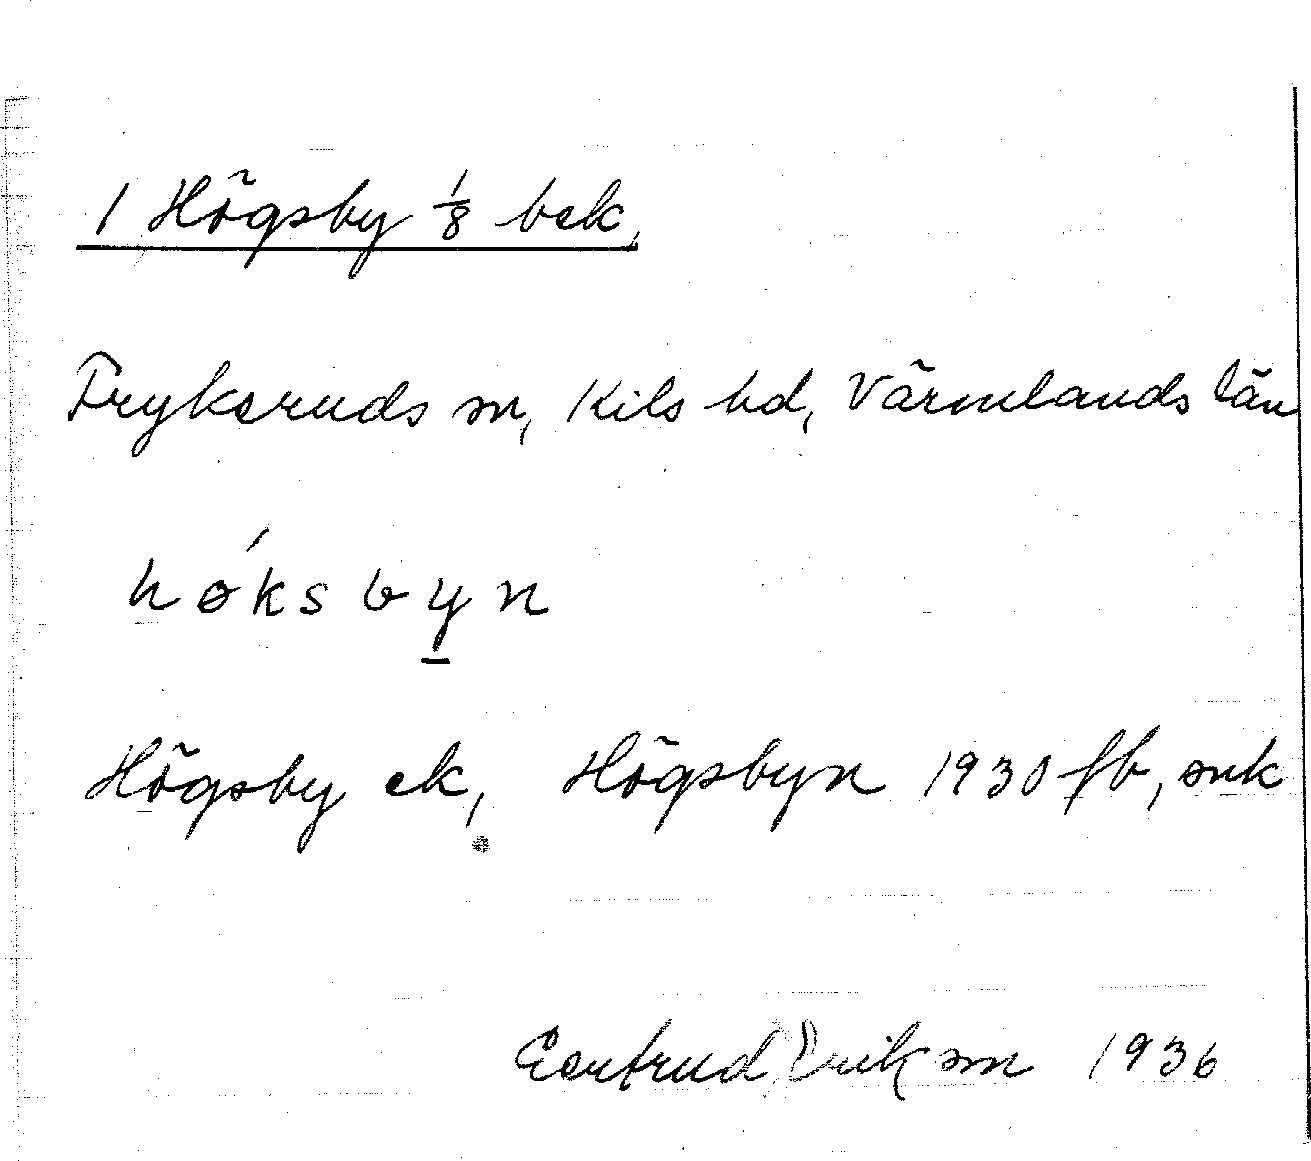 1 Högsby ⅛ bek,
Frykeruds sn, Kils hd, Värmlands län
høksbyn
Högsby ek, Högsbyn 1930 fb, snk
Gertrud Erikson 1936